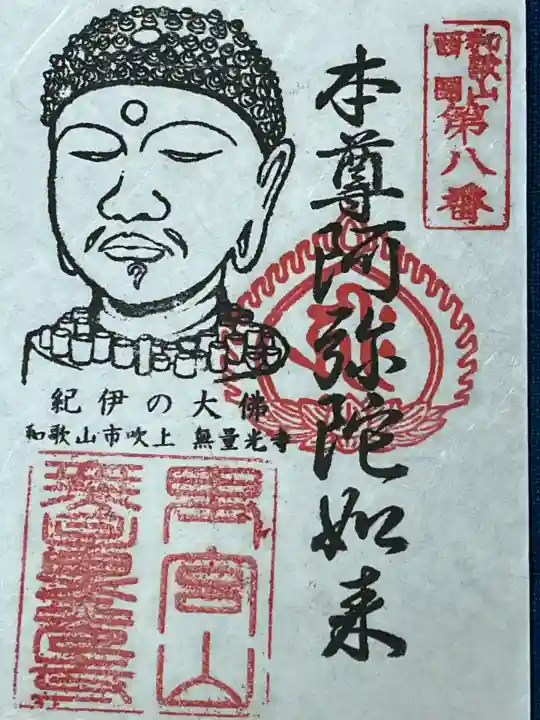 和歌山
西国
第八番
本尊阿弥陀如来
紀伊の大佛
和歌山市吹上 無量光寺